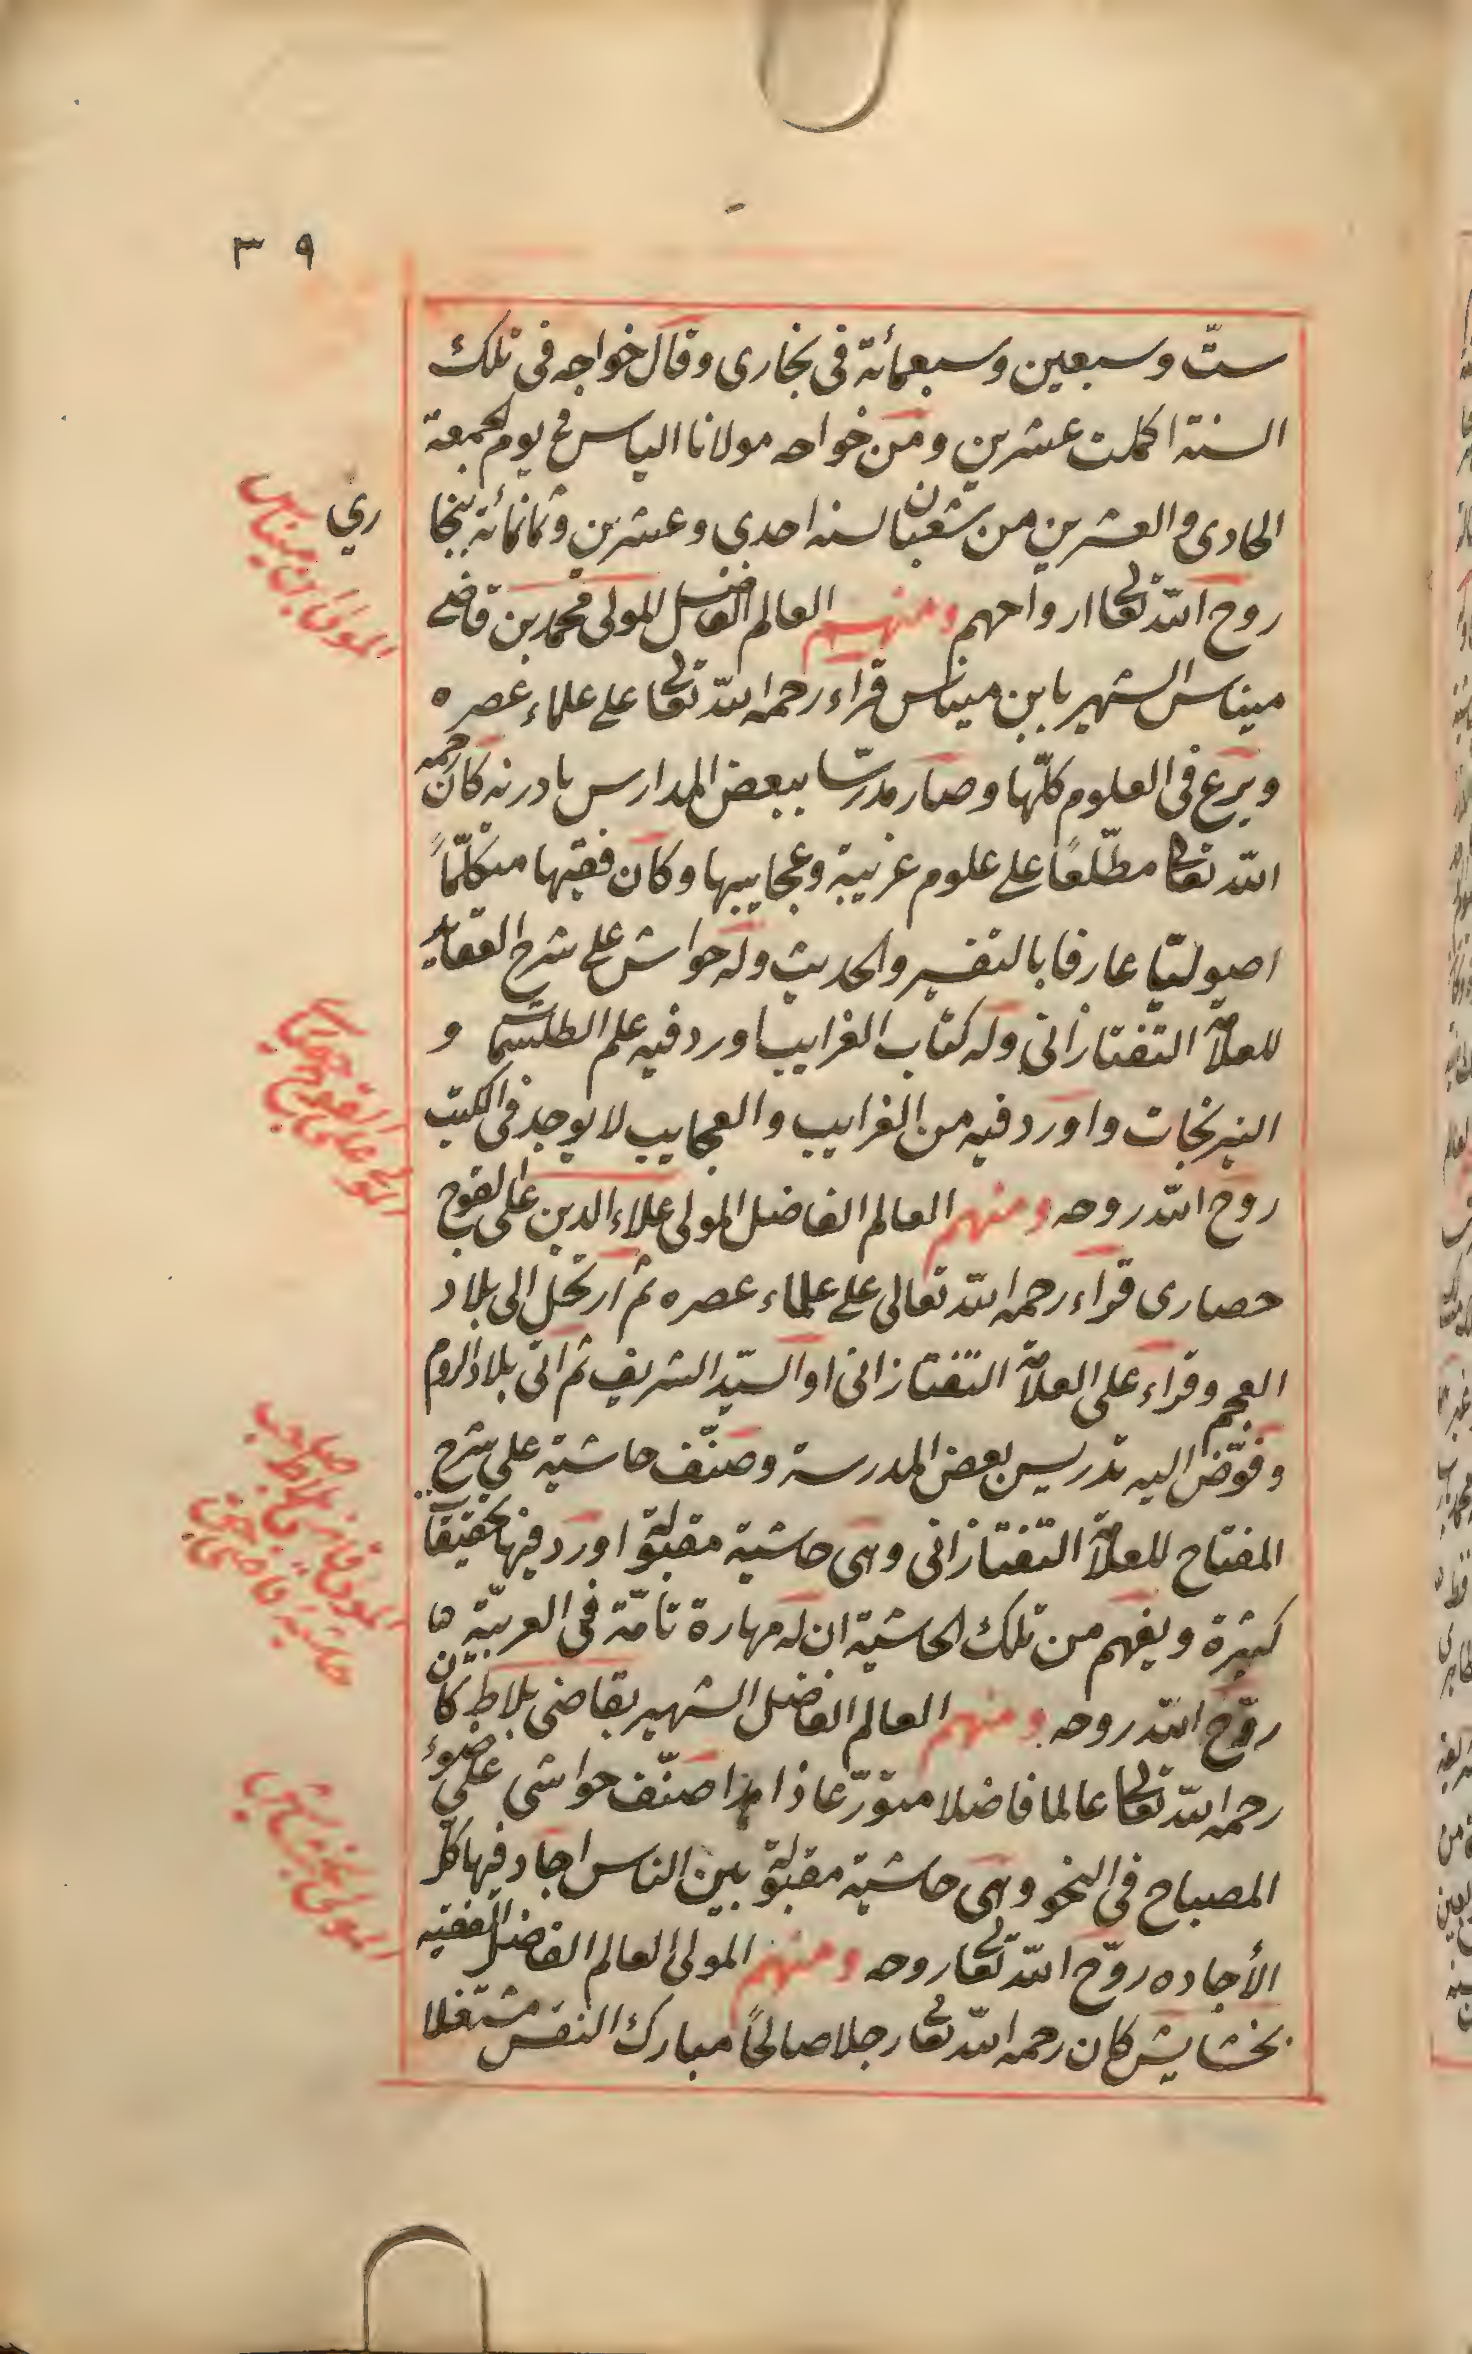 ٣٩
ستّ وسبعين وسبعمائة فى بخارى وقال خواجه فى تلك
السنة اكملت عشرين ومن خواجه مولانا الياس فى يوم الجمعة
الحادى والعشرين من شعبان لسنه احدى وعشرين وثمانمائة ببخا
ري
روح اللّه تعالى ارواحهم ومنهم العالم الفاضل المولى محمد بن قاضى
ميناس الشهير بابن ميناس قراء رحمه اللّه تعالى على علماء عصره
وبرع فى العلوم كلّها وصار مدرّسا ببعض المدارس بادرنه كان رحمه
اللّه تعالى مطّلعًا على علوم غريبة وعجايبها وكان فقيها متكلّمًا
اصوليّا عارفا بالتفسير والحديث وله حواش على شرح العقايد
للعلاّمة التفتازانى وله كتاب الغرايب اورد فيه علم الطلسمات و
النيرنجات واورد فيه من الغرايب والعجايب لا يوجد فى الكتب
روح اللّه روحه ومنهم العالم الفاضل المولى علاء الدين على القوج
حصارى قراء رحمه اللّه تعالى على علماء عصره ثم ارتحل الى بلاد
العجم وقراء على العلاّمة التفتازانى او السيّد الشريف ثم اتى بلاد الروم
وفوّض اليه تدريس بعض المدرسة وصنّف حاشية على شرح
المفتاح للعلاّمة التفتازانى وهى حاشية مقبولة اورد فيها تحقيقات
كثيرة ويفهم من تلك الحاشية ان له مهارة تامّة فى العربيّة ها
روّح اللّه روحه ومنهم العالم الفاضل الشهير بقاضى بلاط كان
رحمه اللّه تعالى عالما فاضلا متورّعا زاهدا صنّف حواشى على ضوء
المصباح فى النحو وهى حاشية مقبولة بين الناس اجاد فيها كل
الأجاده روّح اللّه تعالى روحه ومنهم المولى العالم الفاضل الفقيه
بخشايش كان رحمه اللّه تعالى رجلا صالحًا مبارك النفس مشتغلا
المولى ابن ميناس
المولى على القوجحصارى
المولى قاضى بلاط صاحب
المولى بخشايش